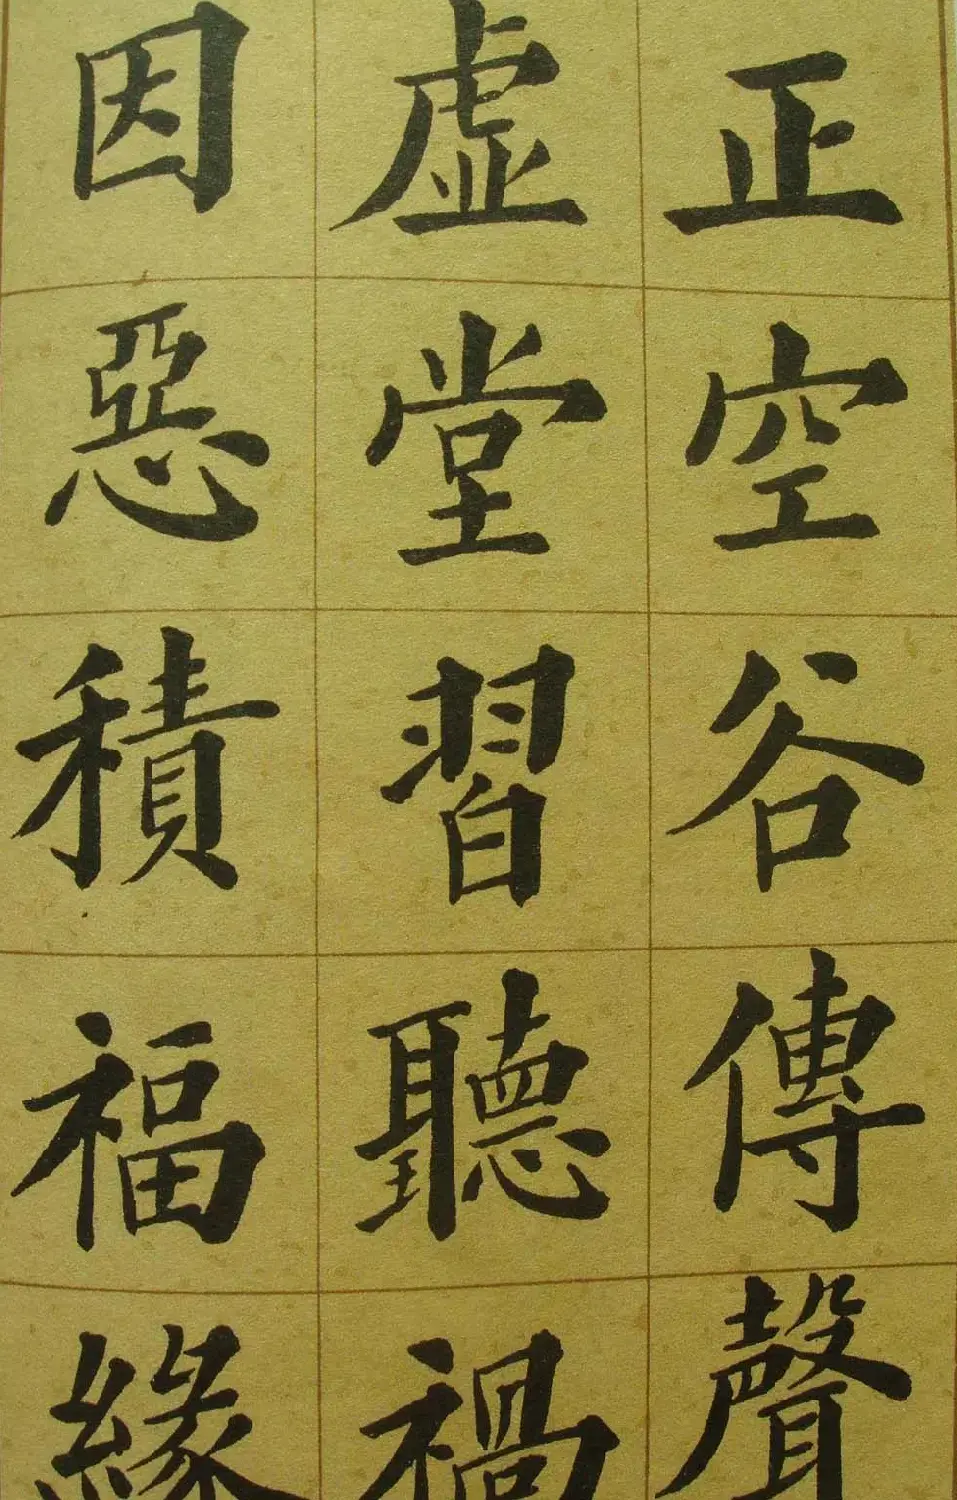 正空谷傳聲
虛堂習聽禍
因惡積福緣